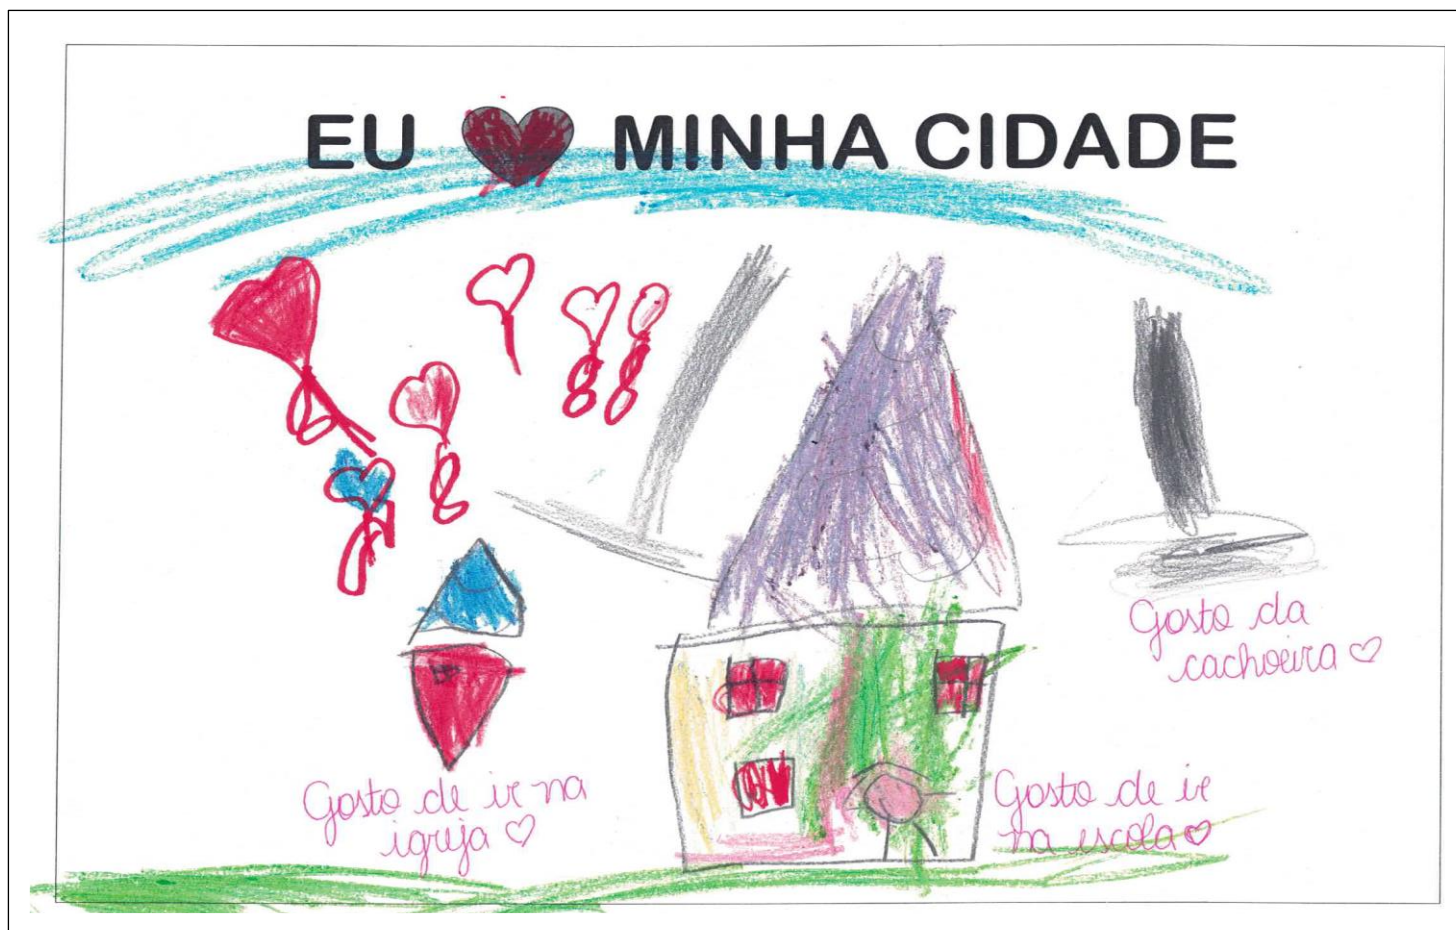 EU ❤ MINHA CIDADE
Gosto da
cachoeira ♡
Gosto de ir na
igreja ♡
Gosto de ir
na escola ♡